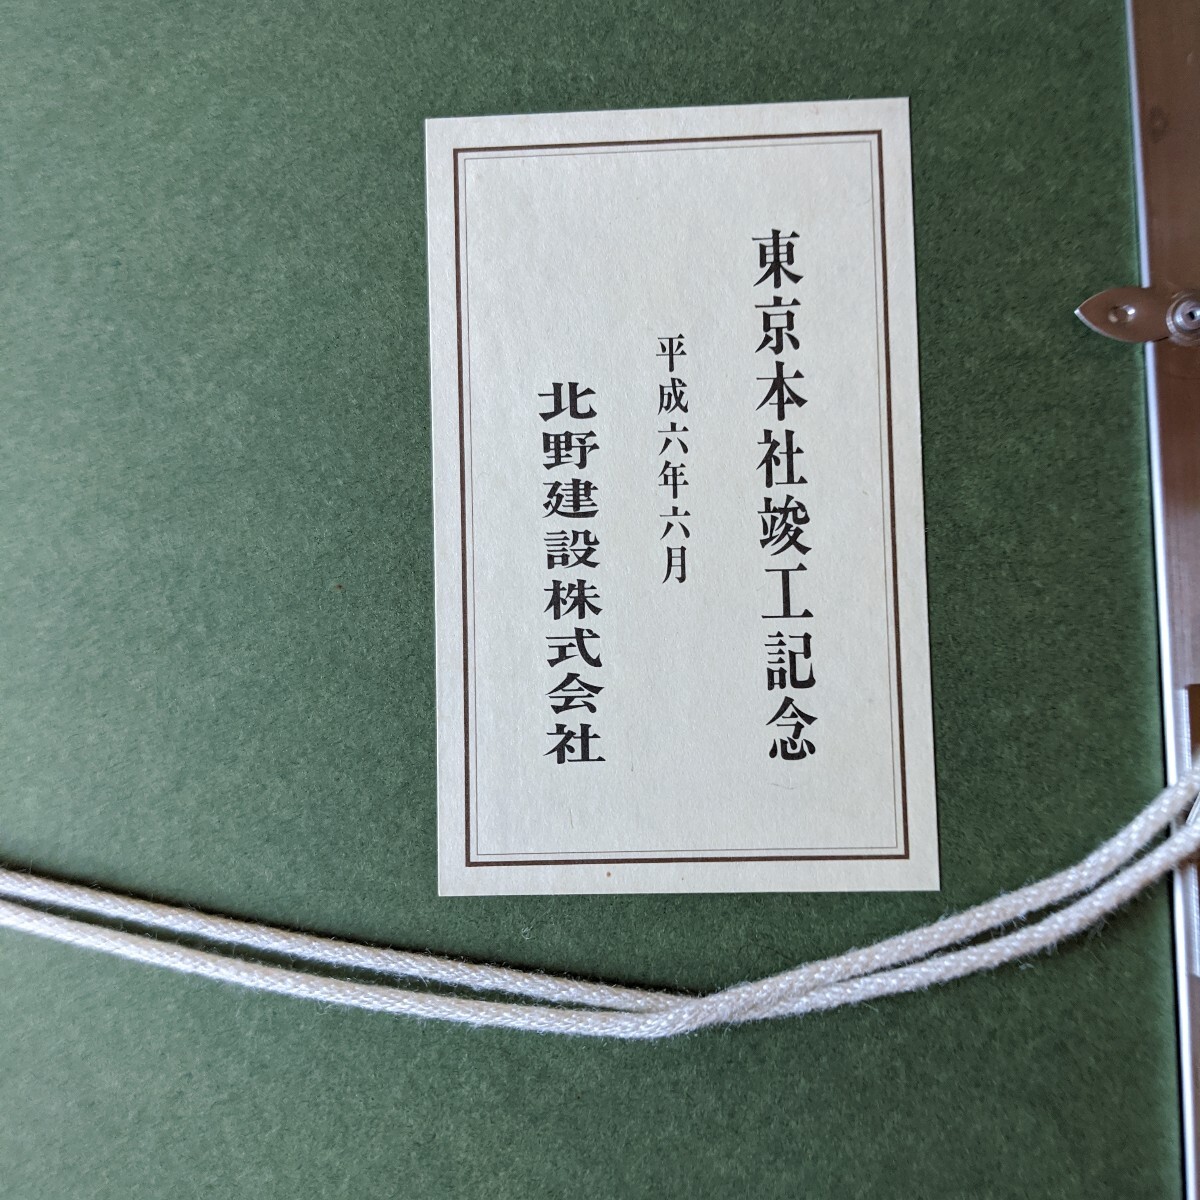 東京本社竣工記念
平成六年六月
北野建設株式会社